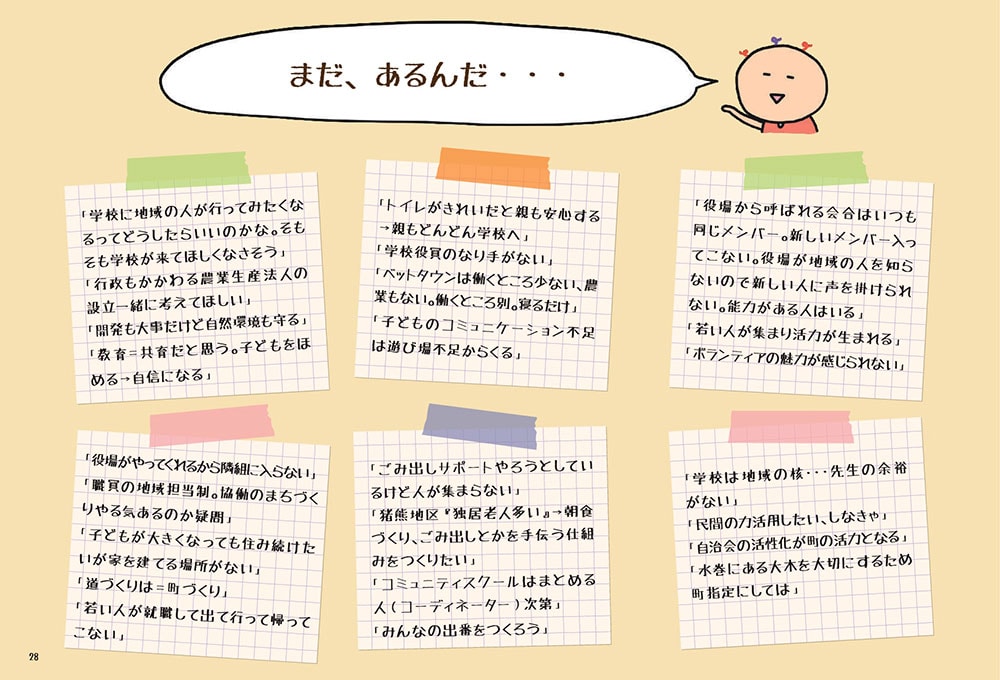 まだ、あるんだ・・・
「学校に地域の人が行ってみたくな
るってどうしたらいいのかな。そも
そも学校が来てほしくなさそう」
「行政もかかわる農業生産法人の
設立一緒に考えてほしい」
「開発も大事だけど自然環境も守る」
「教育＝共育だと思う。子どもをほ
める→自信になる」
「トイレがきれいだと親も安心する
→親もどんどん学校へ」
「学校役員のなり手がない」
「ベットタウンは働くところ少ない、農
業もない。働くところ別。寝るだけ」
「子どものコミュニケーション不足
は遊び場不足からくる」
「役場から呼ばれる会合はいつも
同じメンバー。新しいメンバー入っ
てこない。役場が地域の人を知ら
ないので新しい人に声を掛けられ
ない。能力がある人はいる」
「若い人が集まり活力が生まれる」
「ボランティアの魅力が感じられない」
「役場がやってくれるから隣組に入らない」
「職員の地域担当制。協働のまちづく
りやる気あるのか疑問」
「子どもが大きくなっても住み続けた
いが家を建てる場所がない」
「道づくりは＝町づくり」
「若い人が就職して出て行って帰って
こない」
「ごみ出しサポートやろうとしてい
るけど人が集まらない」
「猪熊地区『独居老人多い』→朝食
づくり、ごみ出しとかを手伝う仕組
みをつくりたい」
「コミュニティスクールはまとめる
人（コーディネーター）次第」
「みんなの出番をつくろう」
「学校は地域の核・・・先生の余裕
がない」
「民間の力活用したい、しなきゃ」
「自治会の活性化が町の活力となる」
「水巻にある大木を大切にするため
町指定にしては」
28